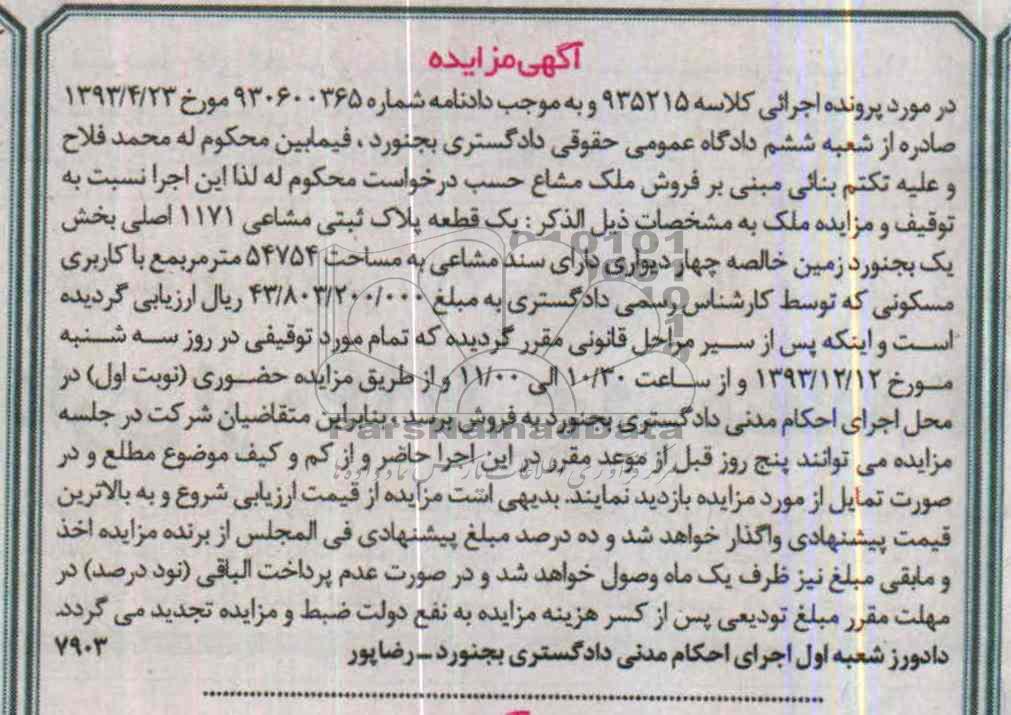 آگهی مزایده
در مورد پرونده اجرائی کلاسه ۹۳۵۲۱۵ و به موجب دادنامه شماره ۹۳۰۶۰۰۳۶۵ مورخ ۱۳۹۳/۴/۲۳
صادره از شعبه ششم دادگاه عمومی حقوقی دادگستری بجنورد ، فیمابین محکوم له محمد فلاح
و علیه تکتم بنائی مبنی بر فروش ملک مشاع حسب درخواست محکوم له لذا این اجرا نسبت به
توقیف و مزایده ملک به مشخصات ذیل الذکر : یک قطعه پلاک ثبتی مشاعی ۱۱۷۱ اصلی بخش
یک بجنورد زمین خالصه چهار دیواری دارای سند مشاعی به مساحت ۵۴۷۵۴ مترمربمع با کاربری
مسکونی که توسط کارشناس رسمی دادگستری به مبلغ ۴۳/۸۰۳/۲۰۰/۰۰۰ ریال ارزیابی گردیده
است و اینکه پس از سیر مراحل قانونی مقرر گردیده که تمام مورد توقیفی در روز سه شنبه
مورخ ۱۳۹۳/۱۲/۱۲ و از ساعت ۱۰/۳۰ الی ۱۱/۰۰ و از طریق مزایده حضوری (نوبت اول) در
محل اجرای احکام مدنی دادگستری بجنورد به فروش برسد ، بنابراین متقاضیان شرکت در جلسه
مزایده می توانند پنج روز قبل از موعد مقرر در این اجرا حاضر و از کم و کیف موضوع مطلع و در
صورت تمایل از مورد مزایده بازدید نمایند. بدیهی است مزایده از قیمت ارزیابی شروع و به بالاترین
قیمت پیشنهادی واگذار خواهد شد و ده درصد مبلغ پیشنهادی فی المجلس از برنده مزایده اخذ
و مابقی مبلغ نیز ظرف یک ماه وصول خواهد شد و در صورت عدم پرداخت الباقی (نود درصد) در
مهلت مقرر مبلغ تودیعی پس از کسر هزینه مزایده به نفع دولت ضبط و مزایده تجدید می گردد.
دادورز شعبه اول اجرای احکام مدنی دادگستری بجنورد ـ رضاپور ۷۹۰۳
ParsNamadData